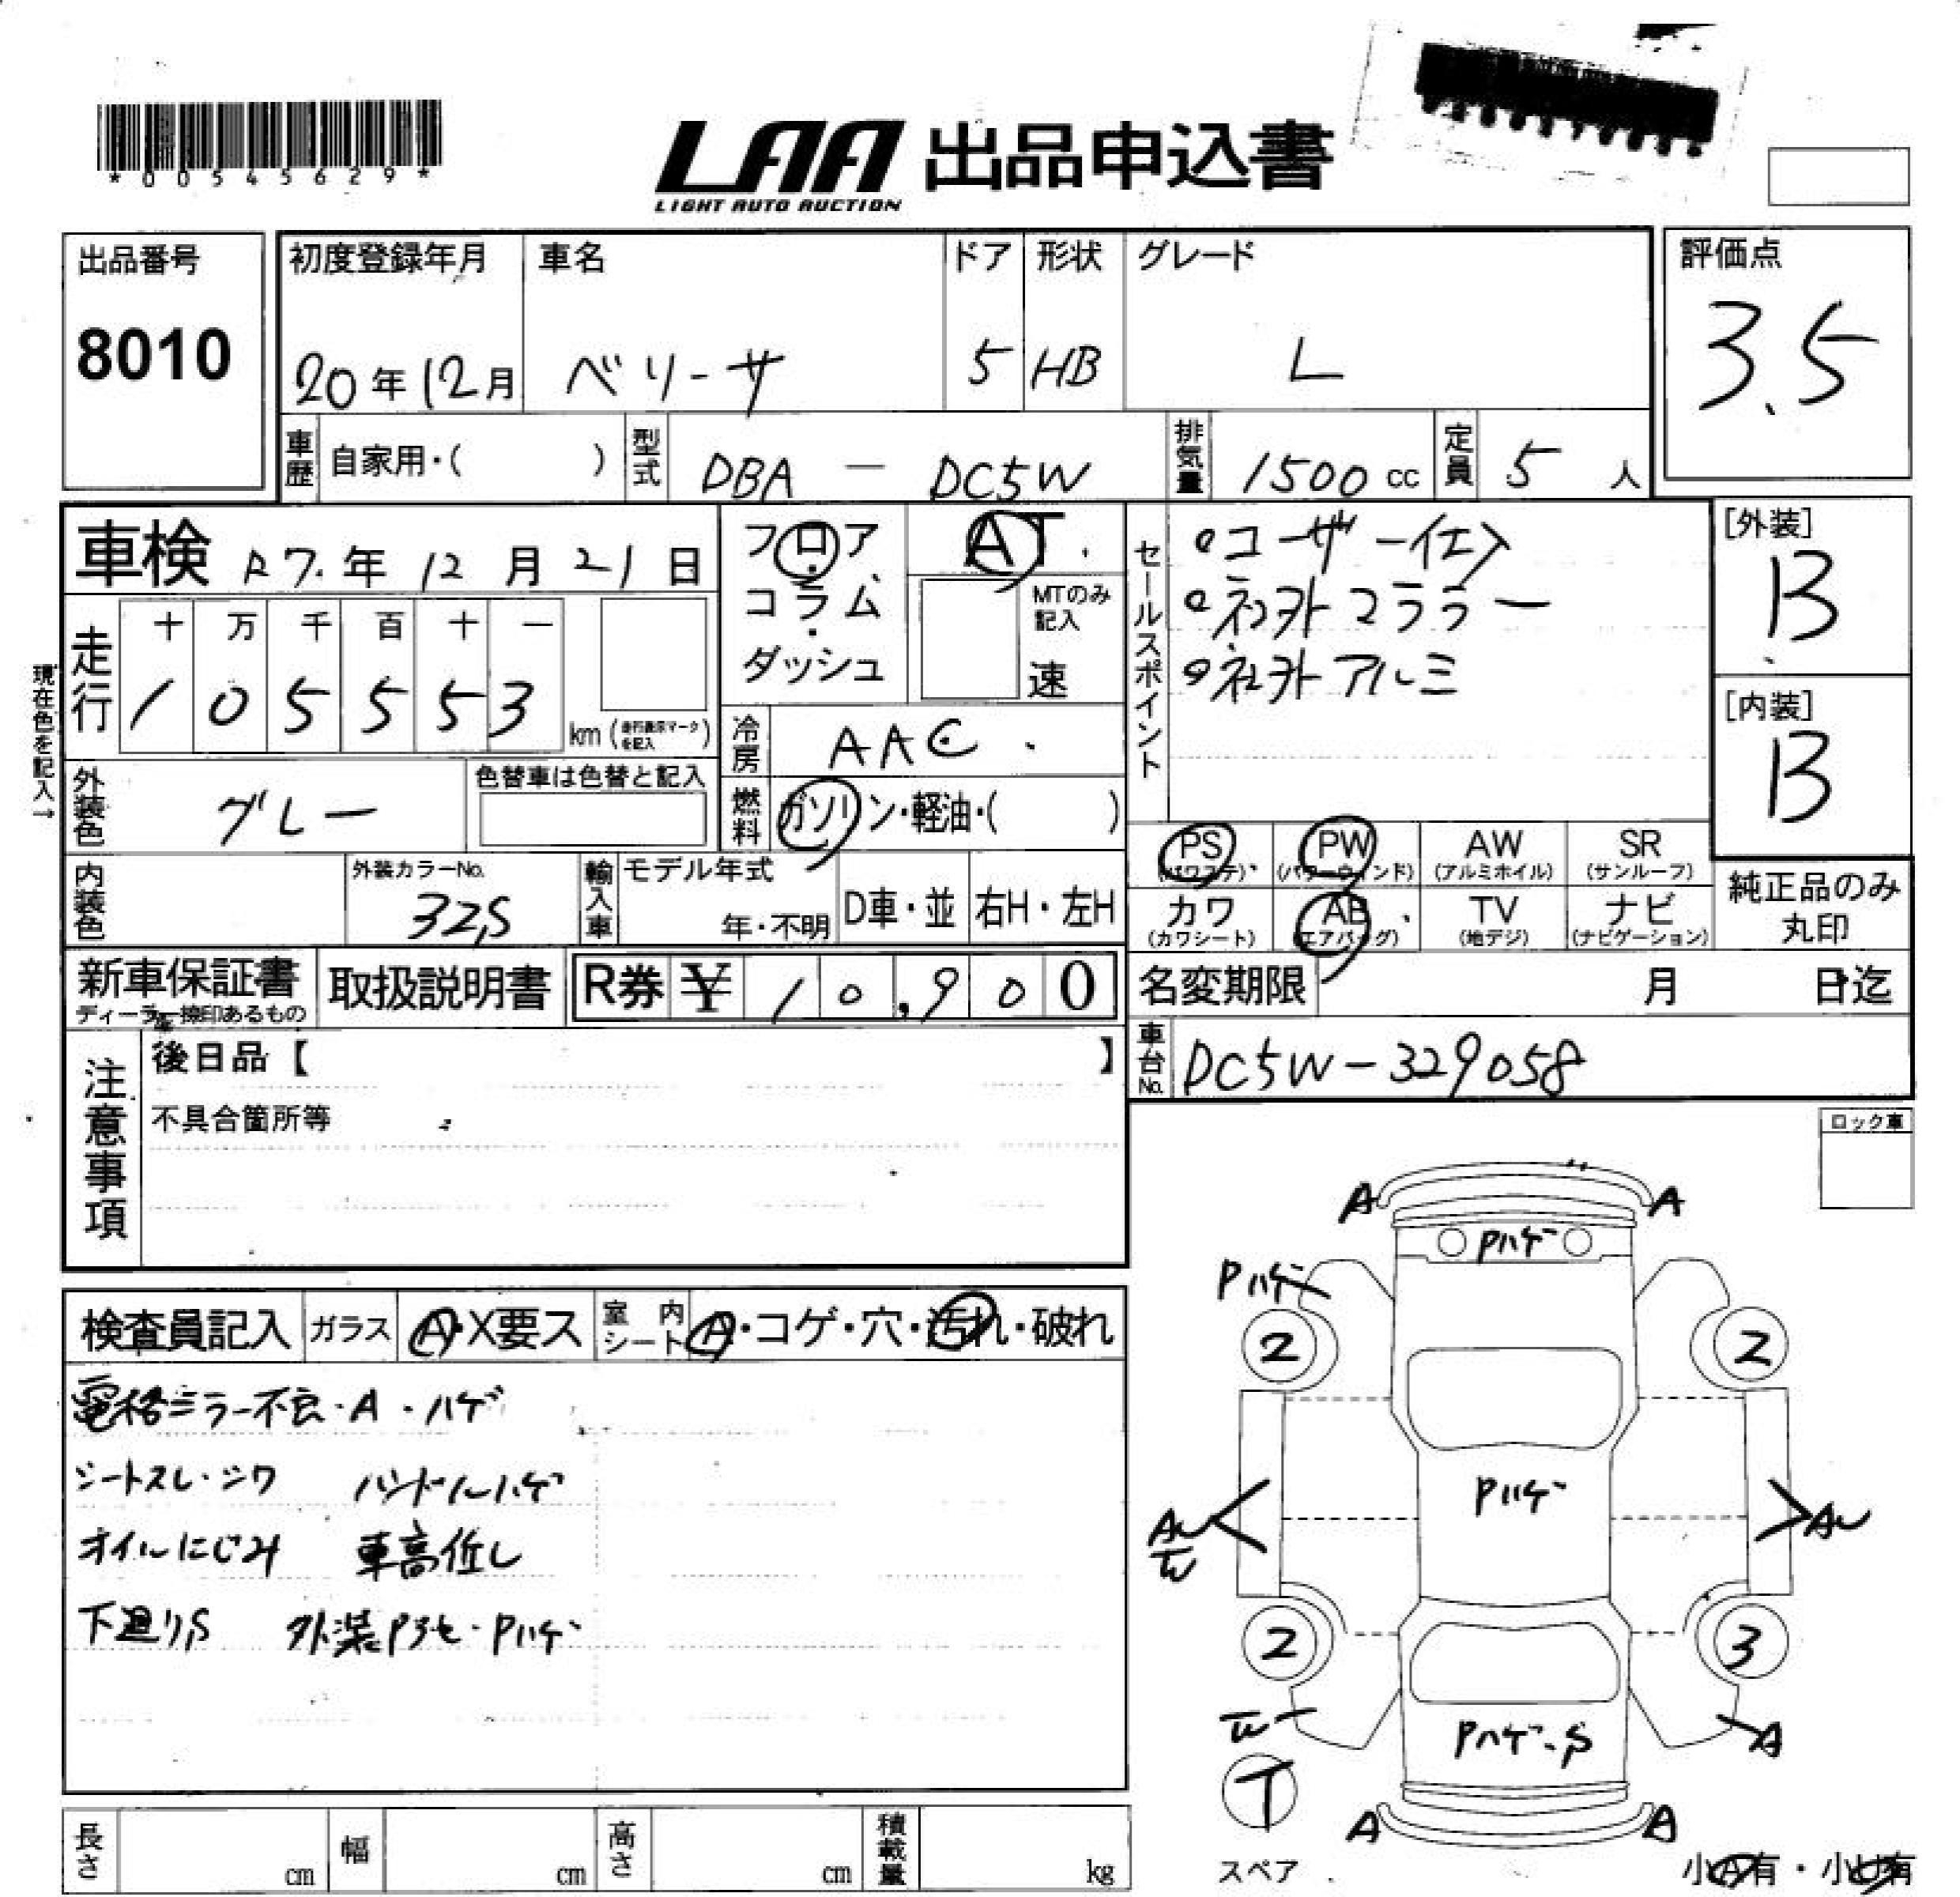 *00545629*
LAA 出品申込書
LIGHT AUTO AUCTION
出品番号
8010
初度登録年月
20年12月
車名
ベリーサ
ドア
5
形状
HB
グレード
L
評価点
3.5
車歴 自家用・( )
型式 DBA - DC5W
排気量 1500 cc
定員 5 人
車検 R7.年 12 月 21 日
フロア・コラム・ダッシュ
AT
MTのみ記入
速
セールスポイント
・ユーザー仕入
・社外マフラー
・社外アルミ
[外装]
B
[内装]
B
現在色を記入→
走行
十 万 千 百 十 一
1 0 5 5 5 3 km (走行表示マークを記入)
冷房 AAC
外装色 グレー
色替車は色替と記入
燃料 ガソリン・軽油・( )
内装色
外装カラーNo.
32S
輸入車 モデル年式
年・不明
D車・並
右H・左H
PS (パワステ)
PW (パワーウィンド)
AW (アルミホイル)
SR (サンルーフ)
カワ (カワシート)
AB (エアバッグ)
TV (地デジ)
ナビ (ナビゲーション)
純正品のみ丸印
新車保証書
ディーラー捺印あるもの
取扱説明書
R券 ¥ 10,900
名変期限 月 日迄
車台No. DC5W-329058
注意事項
後日品【 】
不具合箇所等
ロック車
検査員記入
ガラス A・X要ス
室内シート A・コゲ・穴・汚れ・破れ
電格ミラー不良・A・ハゲ
シートスレ・シワ ハンドルハゲ
オイルにじみ 車高低し
下廻りS 外装P3セ・Pハゲ
A A
Pハゲ
Pハゲ
2 2
Pハゲ
AU
W
AU
2 3
W
Pハゲ・S
A
T
A A
スペア
小A有・小U有
長さ cm
幅 cm
高さ cm
積載量 kg